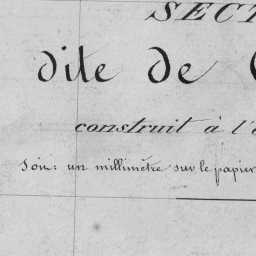 SECT
dite de
construit à l'é
Soit: un millimètre sur le papier